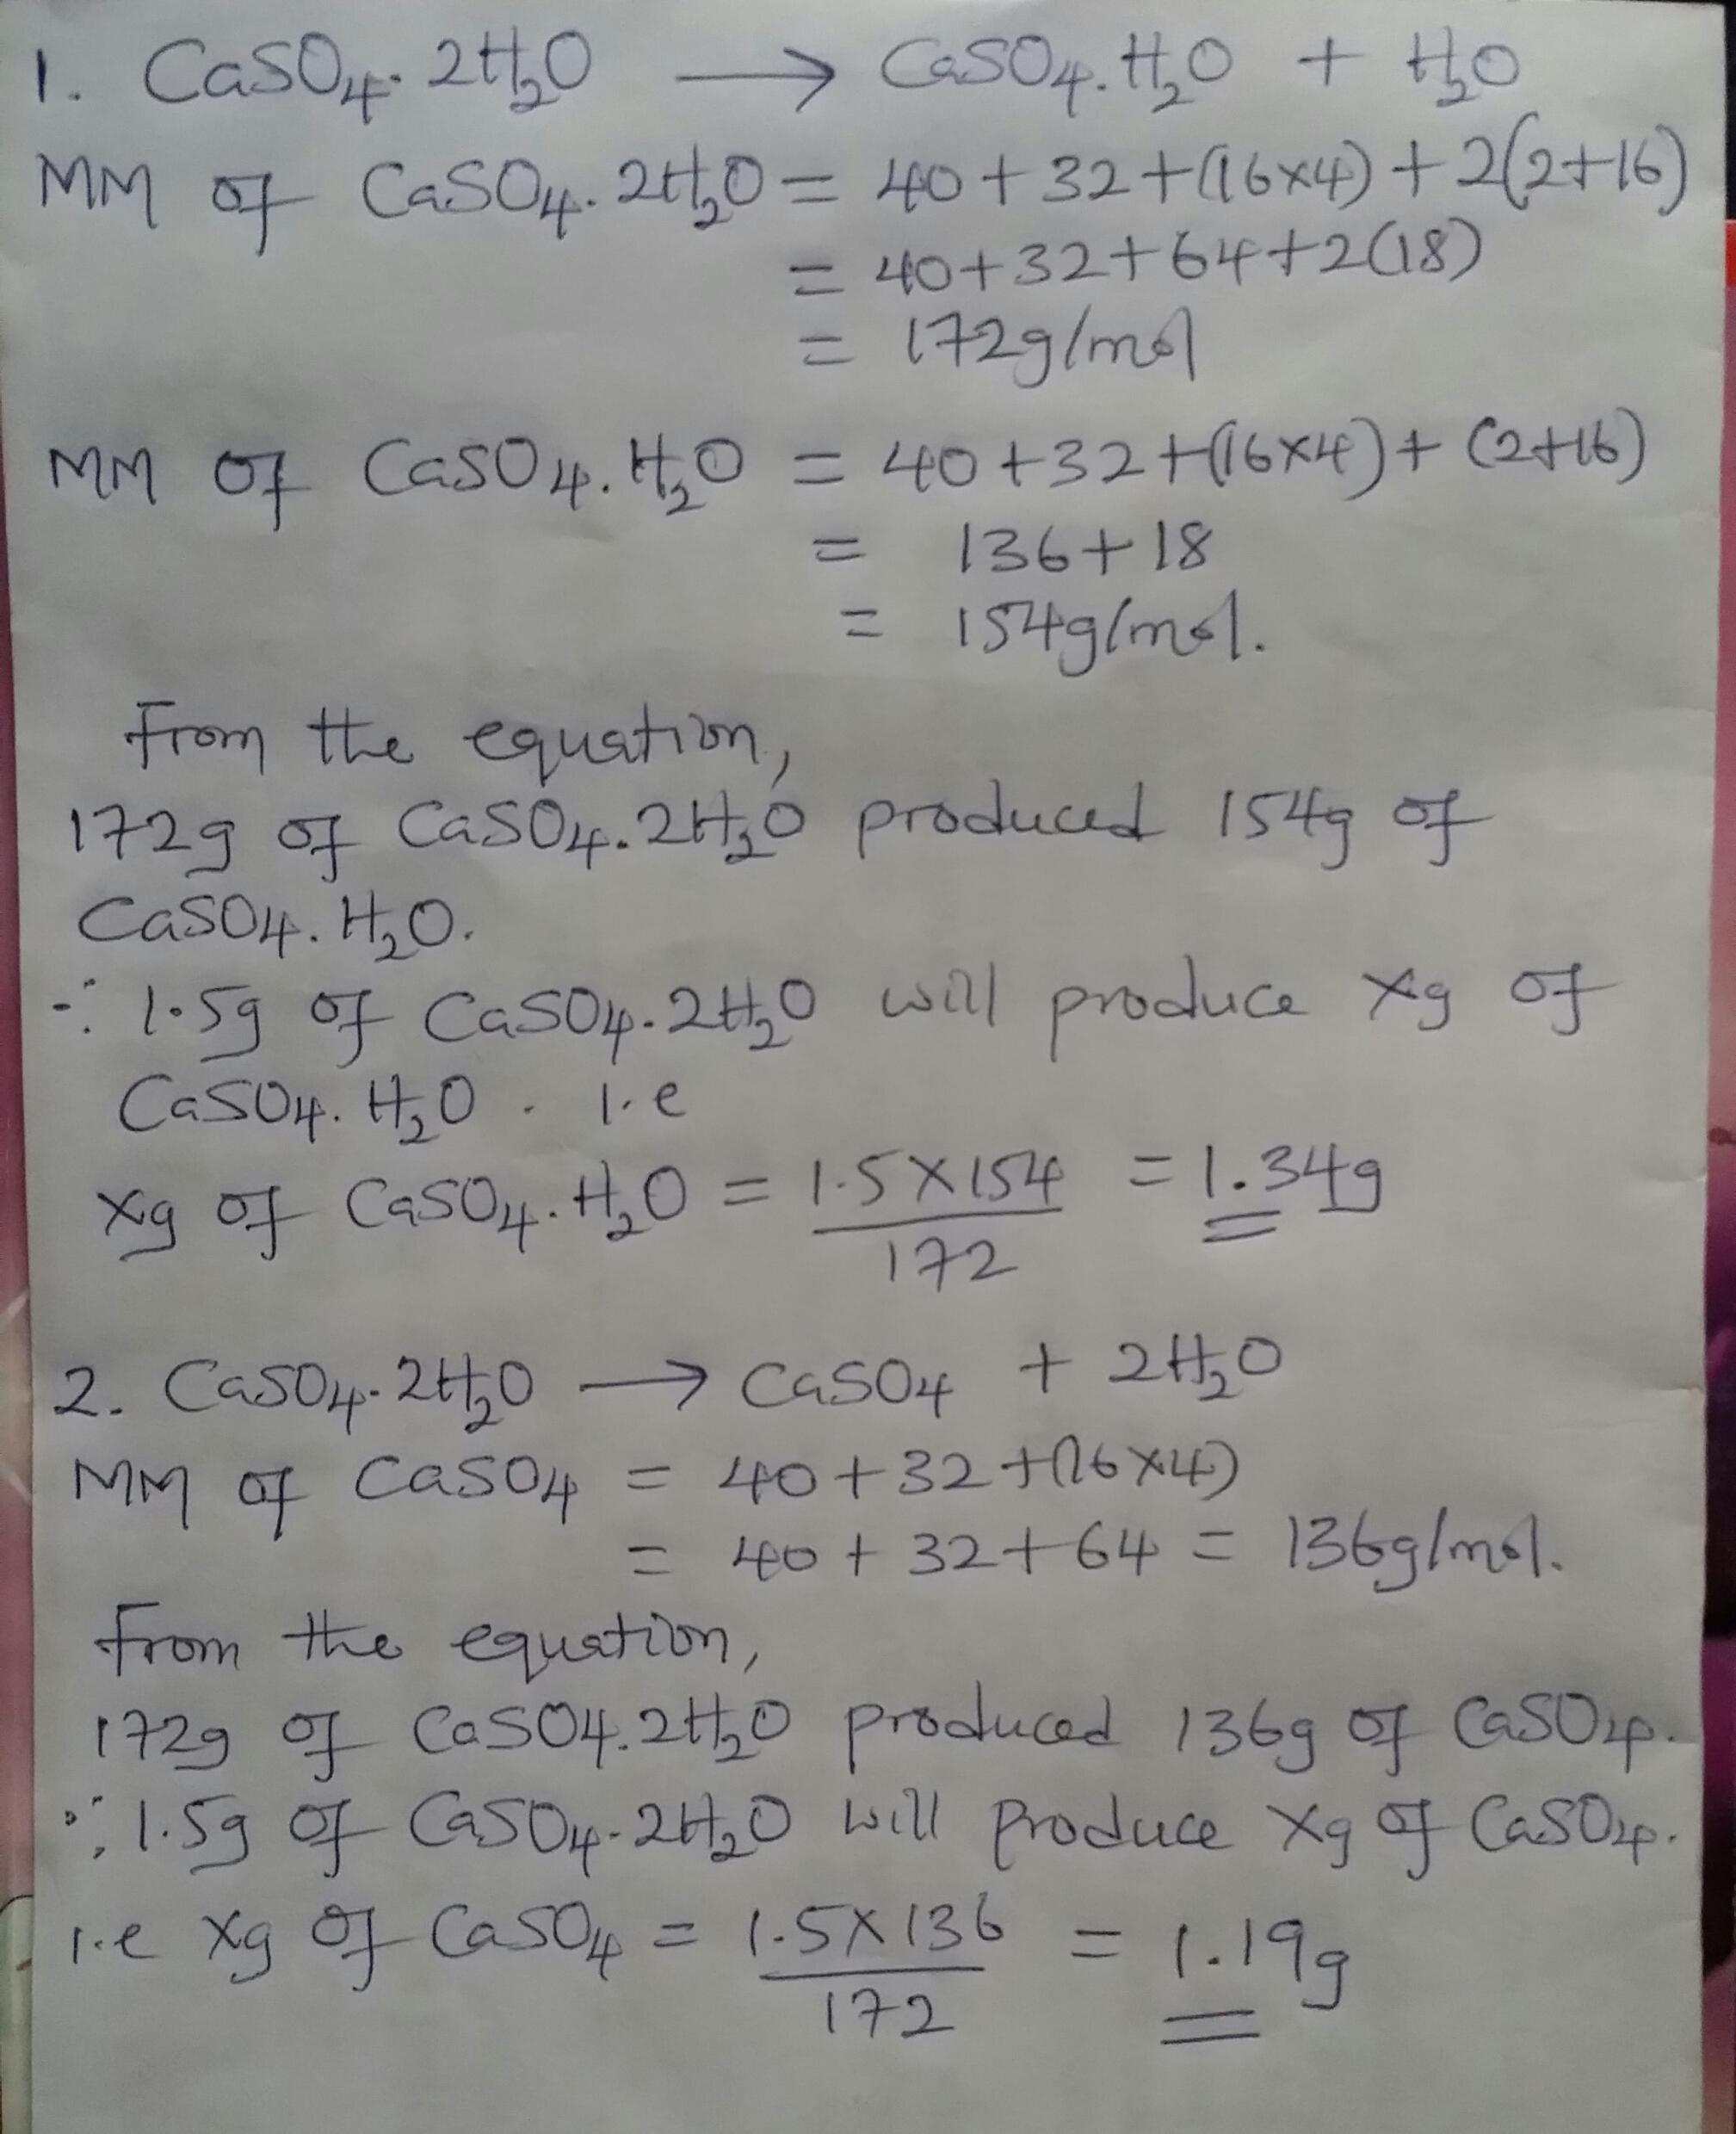 1. CaSO₄. 2H₂O → CaSO₄. H₂O + H₂O
MM of CaSO₄. 2H₂O = 40 + 32 + (16x4) + 2(2+16)
= 40 + 32 + 64 + 2(18)
= 172g/mol
MM of CaSO₄. H₂O = 40 + 32 + (16x4) + (2+16)
= 136 + 18
= 154g/mol.
From the equation,
172g of CaSO₄. 2H₂O produced 154g of
CaSO₄. H₂O.
∴ 1.5g of CaSO₄. 2H₂O will produce xg of
CaSO₄. H₂O . i.e
xg of CaSO₄. H₂O = 1.5 x 154 = 1.34g
172
2. CaSO₄. 2H₂O → CaSO₄ + 2H₂O
MM of CaSO₄ = 40 + 32 + (16x4)
= 40 + 32 + 64 = 136g/mol.
From the equation,
172g of CaSO₄. 2H₂O produced 136g of CaSO₄.
∴ 1.5g of CaSO₄. 2H₂O will produce xg of CaSO₄.
i.e xg of CaSO₄ = 1.5 x 136 = 1.19g
172